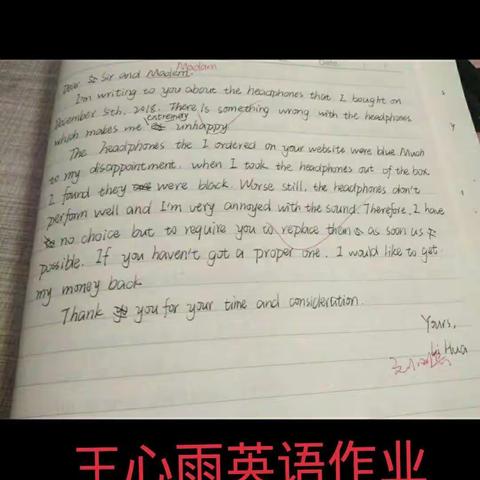 Madam
Dear Sir and Madem.
I'm writing to you about the headphones that I bought on
December 5th, 2018. There is something wrong with the headphones
extremely
which makes me unhappy
The headphones the I ordered on your website were blue. Much
to my disappointment, when I took the headphones out of the box
I found they were black. Worse still, the headphones don't
perform well and I'm very annoyed with the sound. Therefore, I have
no choice but to require you to replace them as soon us
possible. If you haven't got a proper one. I would like to get
my money back
Thank you for your time and consideration.
Yours,
Li Hua
王心雨英语作业